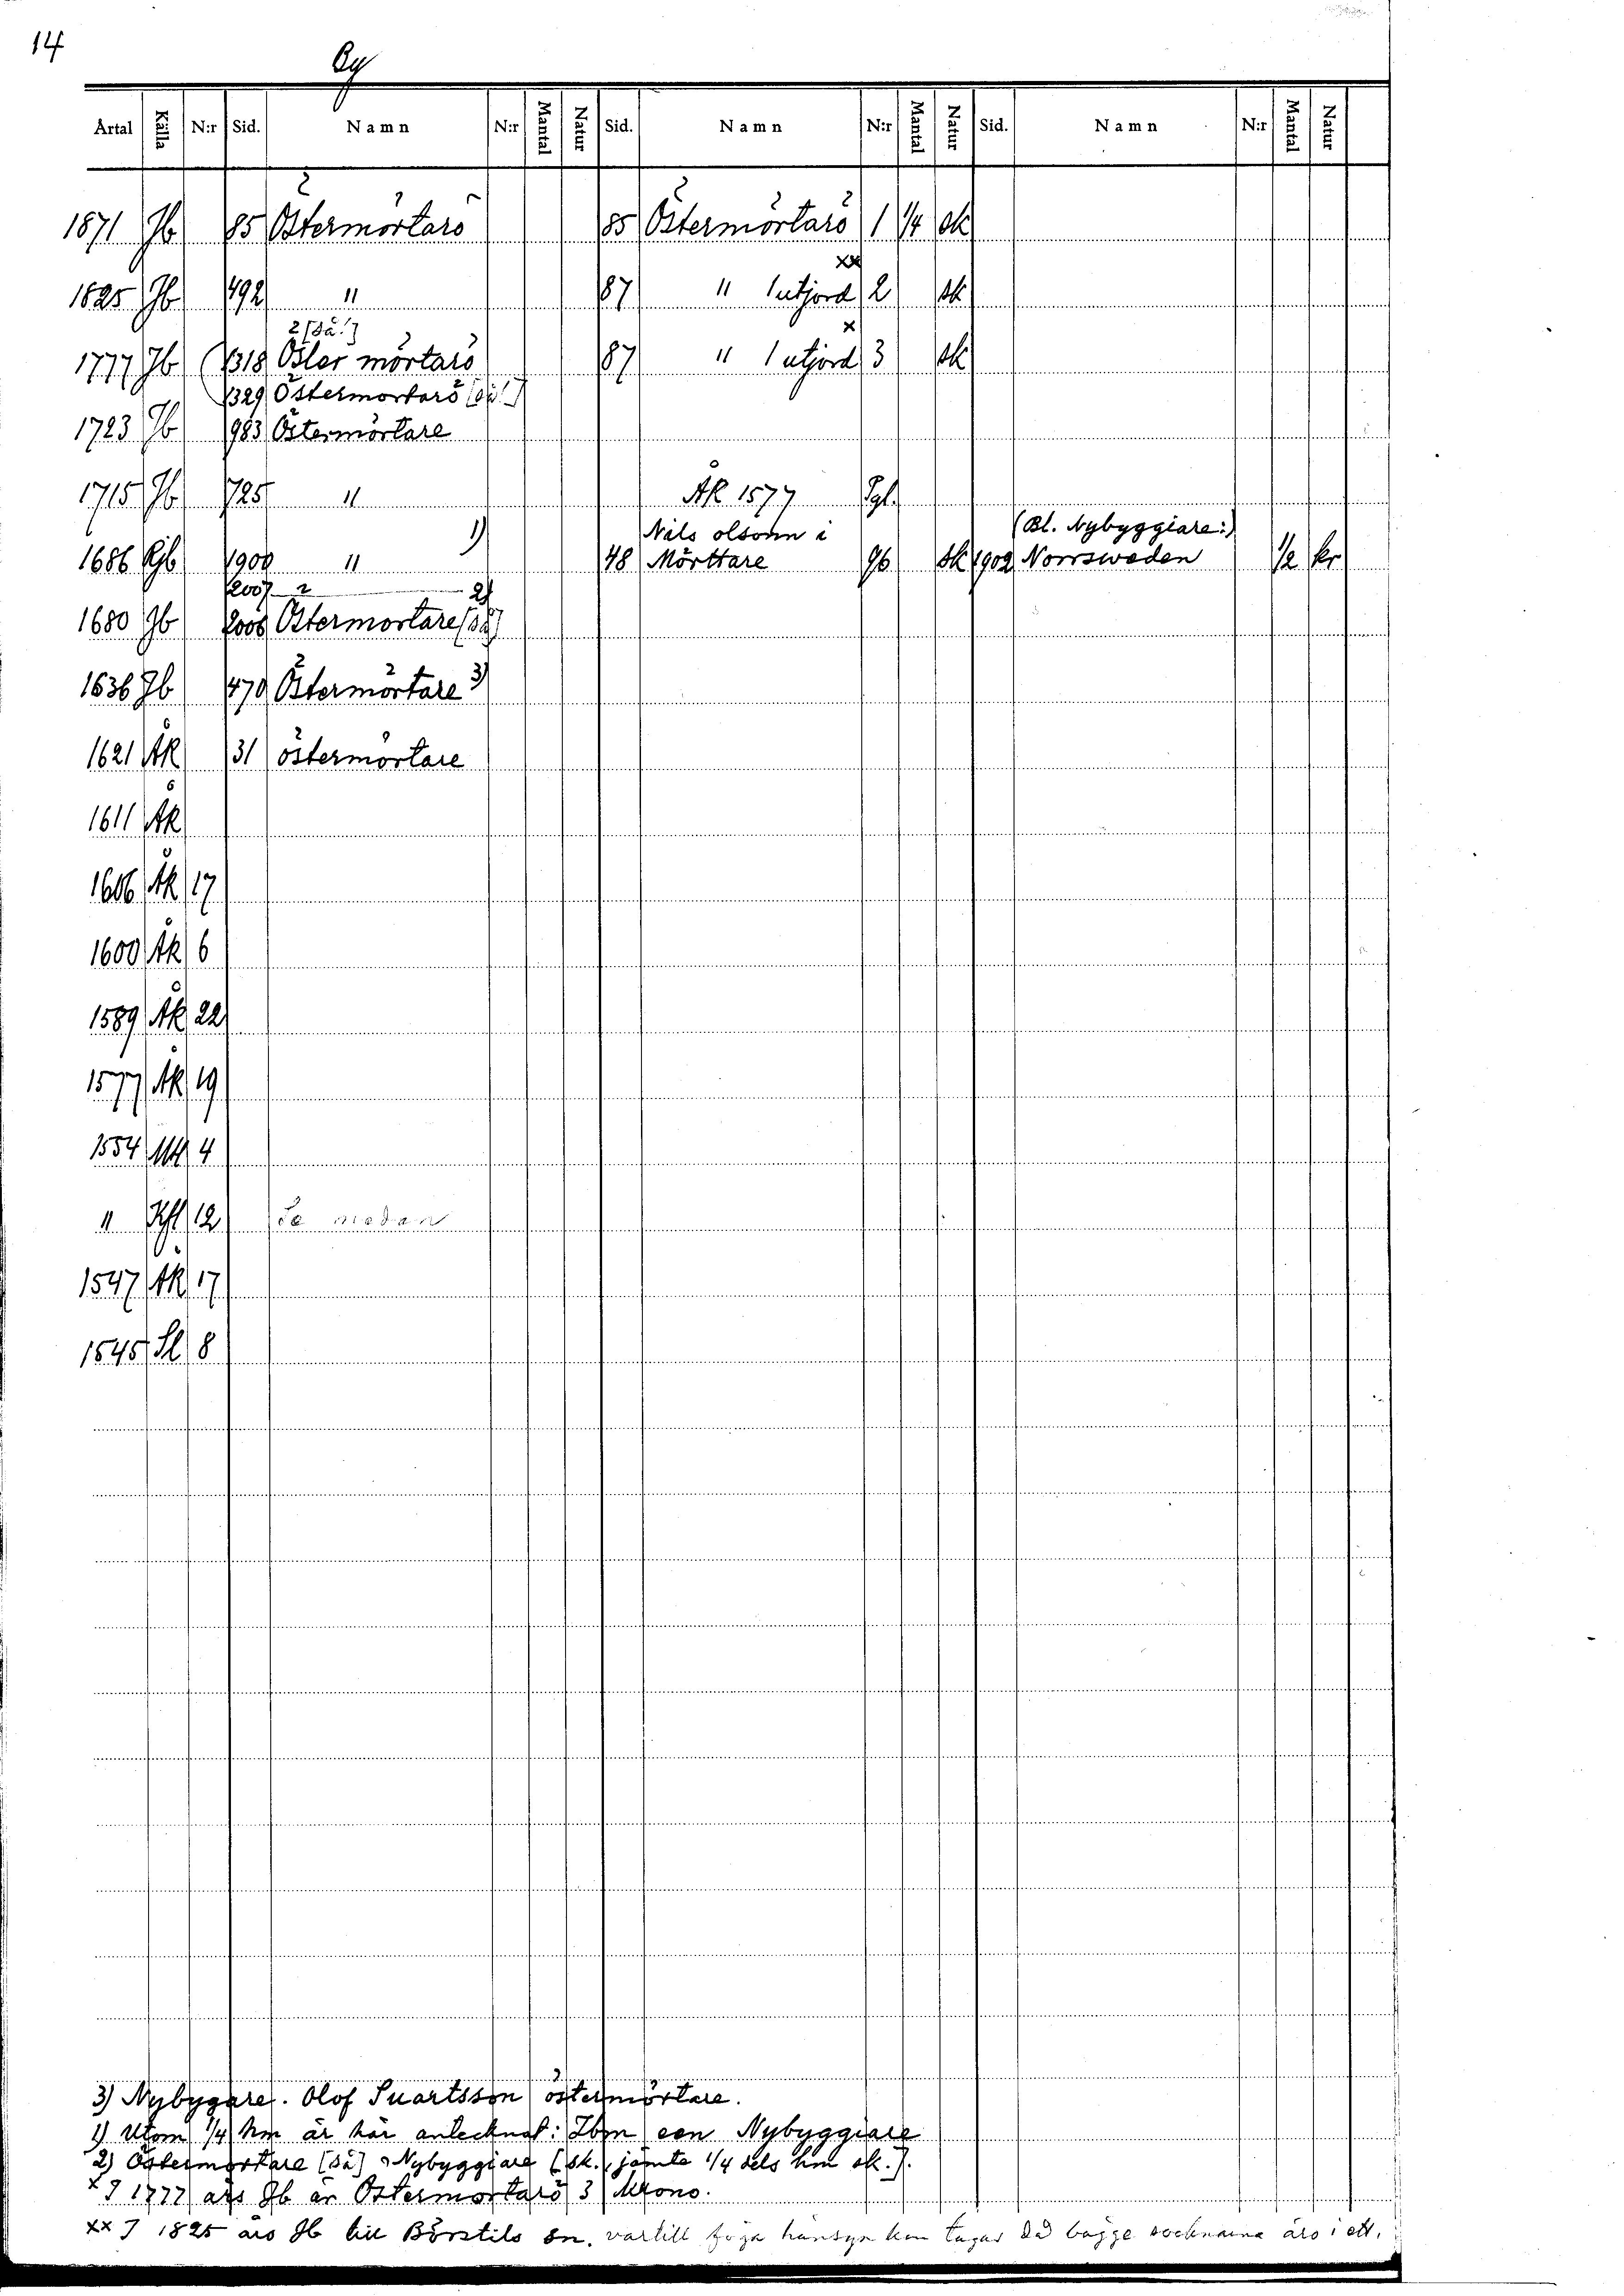 14
By
Årtal Källa N:r Sid. Namn N:r Mantal Natur Sid. Namn N:r Mantal Natur Sid. Namn N:r Mantal Natur
1871 Jb 85 Östermörtarö 85 Östermörtarö 1 1/4 sk
xx
1825 Jb 492 " 87 " 1 utjord 2 sk
2 [så!] x
1777 Jb 1318 Öster mörtarö 87 " 1 utjord 3 sk
1329 Östermortarö [så!]
1723 Jb 983 Östermörtare
1715 Jb 725 " ÅK 1577 Sgl.
1) Nils olsonn i (Bl. Nybyggiare:)
1686 Rjb 1900 " 48 Mörttare 96 sk 1902 Norrsweden 1/2 kr
2007 2)
1680 Jb 2008 Östermortare [så]
1636 Jb 470 Östermörtare 3)
1621 ÅK 31 östermörtare
1611 ÅK
1606 ÅK 17
1600 ÅK 6
1589 ÅK 22
1577 ÅK 19
1554 4
" 12 Se nedan
1547 ÅK 17
1545 Sl 8
3) Nybygare. Olof Suartsson östermörtare.
1) Utom 1/4 hm är här antecknat: Ibm een Nybyggiare
2) Östermortare [så] Nybyggiare (sk., jämte 1/4 dels hm sk.).
x I 1777 års Jb är Östermortarö 3 Krono.
xx I 1825 års Jb till Börstils sn. vartill föga hänsyn kan tagas då bägge socknarna äro i ett.